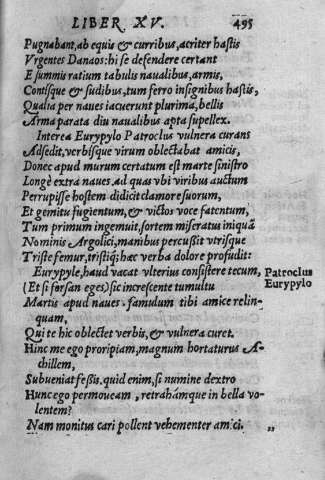 LIBER XV. 495
Pugnabant, ab equis & curribus, acriter hastis
Vrgentes Danaos: hi se defendere certant
E summis ratium tabulis naualibus, armis,
Contisque & sudibus, tum ferro insignibus hastis,
Qualia per naues iacuerunt plurima, bellis
Arma parata diu naualibus apta supellex.
Interea Eurypylo Patroclus vulnera curans
Adsedit, verbisque virum oblectabat amicis,
Donec apud murum certatum est marte sinistro
Longè extra naues, ad quas vbi viribus auctum
Perrupisse hostem didicit clamore suorum,
Et gemitu fugientum, & victos voce fatentum,
Tum primum ingemuit, sortem miseratus iniquã
Nominis Argolici, manibus percußit vtrisque
Triste femur, tristiq; hæc verba dolore profudit:
Eurypyle, haud vacat vlterius consistere tecum,
Patroclus
Eurypylo
(Et si forsan eges) sic increscente tumultu
Martis apud naues. famulum tibi amice relin-
quam,
Qui te hic oblectet verbis, & vulnera curet.
Hinc me ego proripiam, magnum hortaturus A-
chillem,
Subueniat feßis, quid enim, si numine dextro
Hunc ego permoueam, retrahámque in bella vo-
lentem?
Nam monitus cari pollent vehementer amici. „